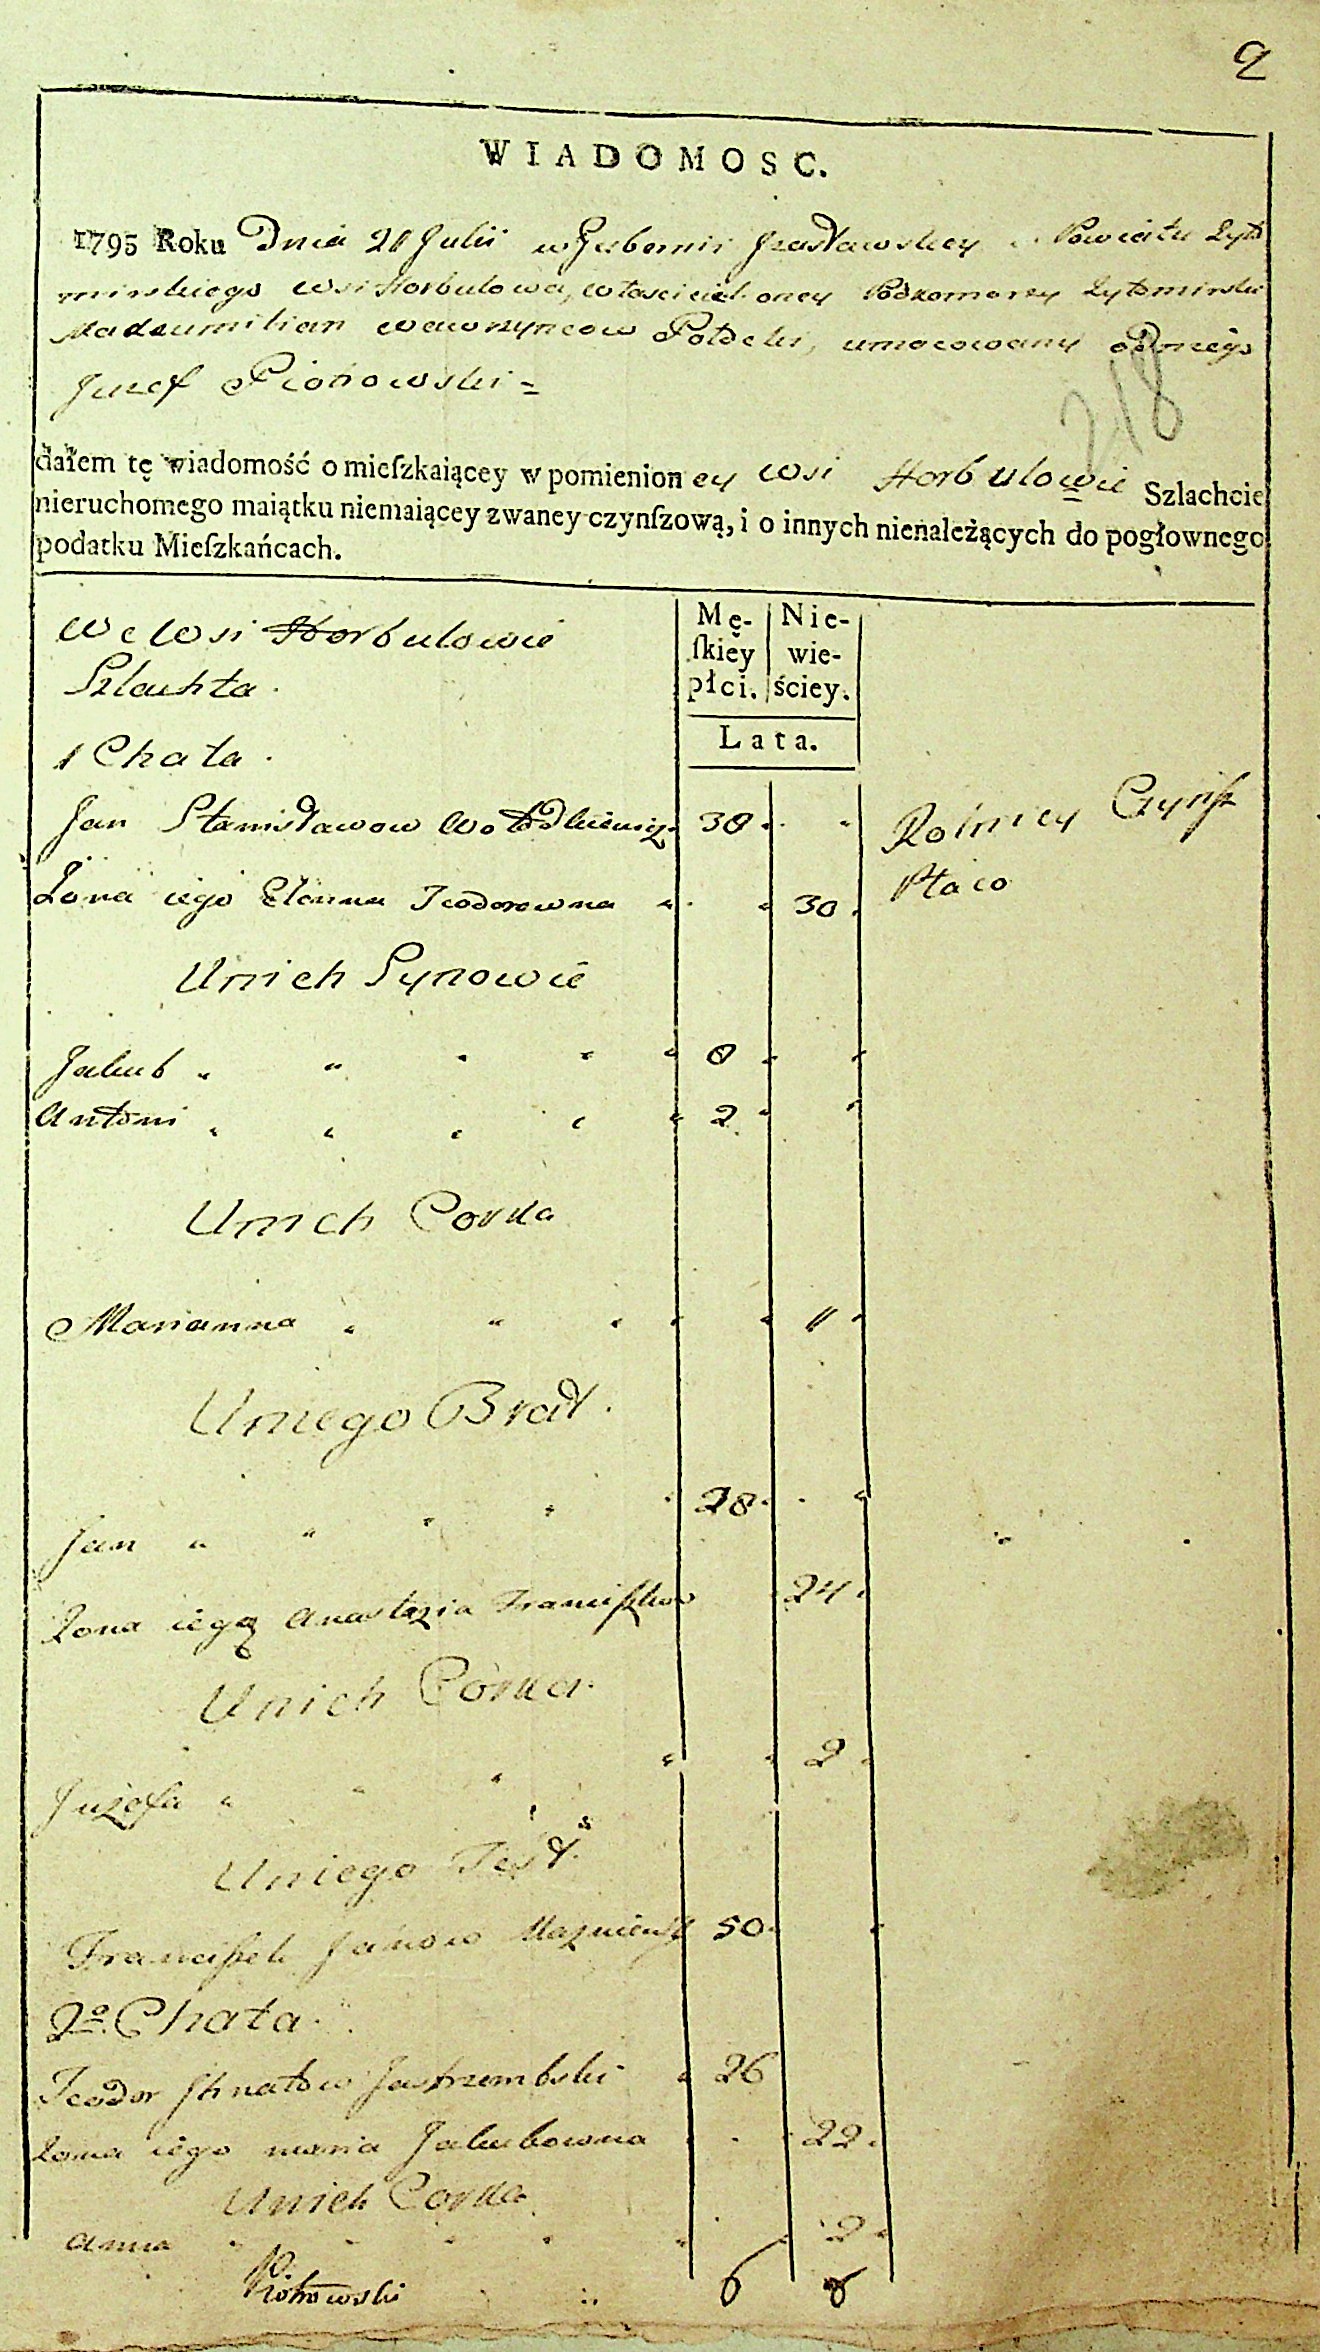 2
WIADOMOSC.
1795 Roku Dnia 20 Julii w Gubernii Jzasławskiey i Powiatu Żyto
mirskiego wsi Horbulowa, właściciel oney Podkomorzy Żytomirski
Maxsumilian Wawrzyncow Potocki, umocowany od niego
Juzef Piotrowski =
218
dałem tę wiadomość o mieſzkaiącey w pomienion ey wsi Horbulowie Szlachcie
nieruchomego maiątku niemaiącey zwaney czynſzową, i o innych nienależących do pogłownego
podatku Mieſzkańcach.
We Wsi Horbulowie
Szlachta.
Mę- Nie-
ſkiey wie-
płci. ściey.
Lata.
1 Chata.
Jan Stanisławow Wołodkiewicz 30 Rolnicy Czynſz
Żona iego Teodorowna 30 Płaco
Unich Synowie
Jakub 8
Antoni 2
Unich Corka
Marianna 11
Uniego Brat.
Jan 28
Żona iego Anastazia Franciſzkow 24
Unich Córka.
Juzefa 2
Uniego Teść
Franciſzek Janow 50
2o Chata.
Teodor Ihnatow Jastrzembski 26
Żona iego maria Jakubowna 22
Unich Corka
Anna 2
Piotrowski 6 6